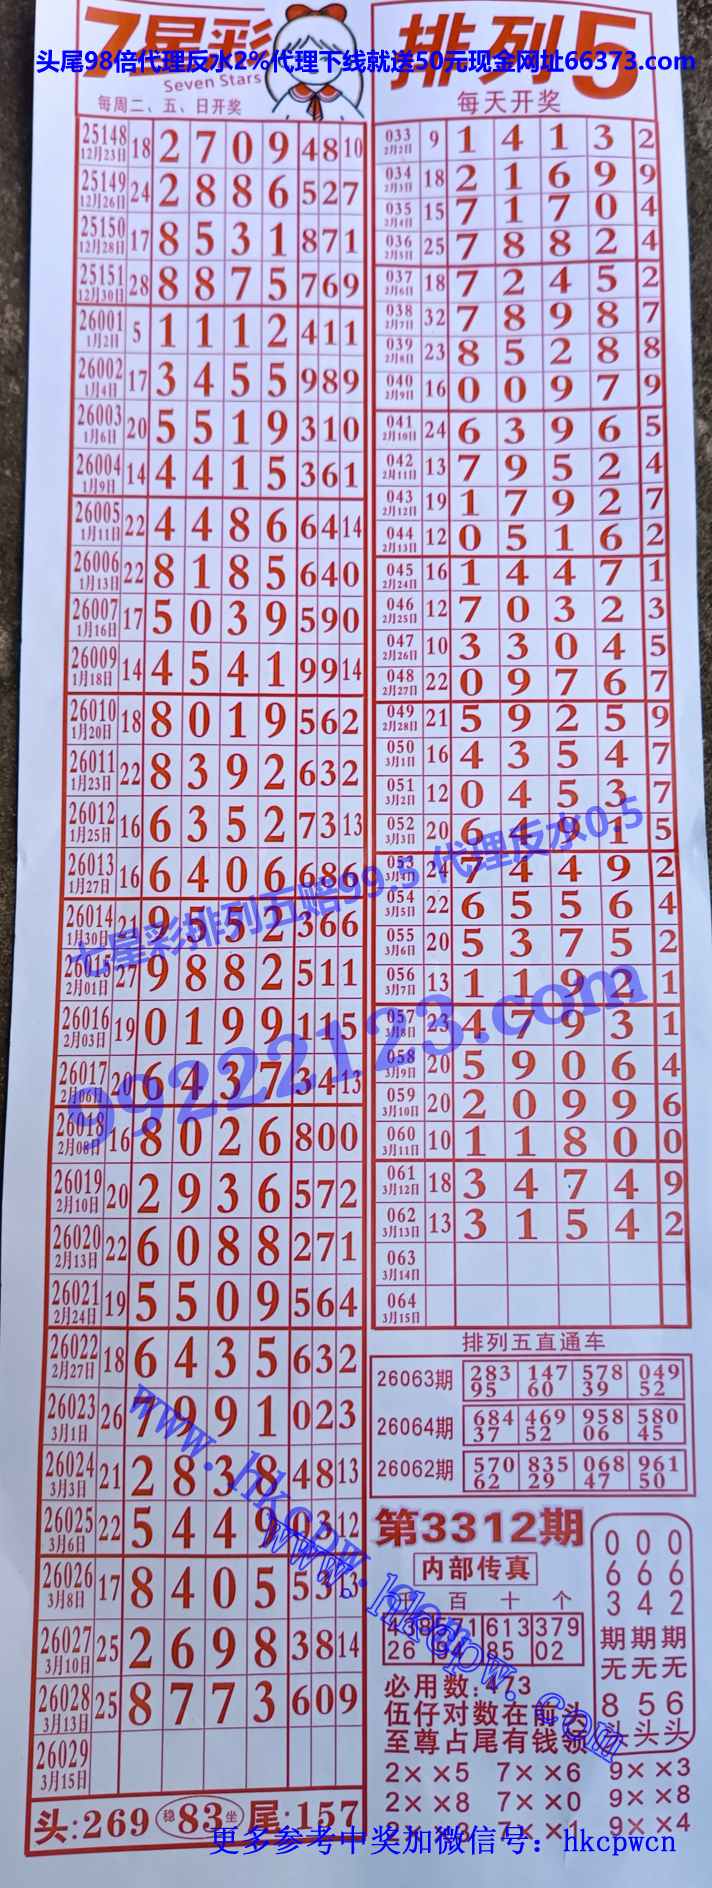 7星彩
Seven Stars
头尾98倍代理反水2%代理下线就送50元现金网址66373.com
每周二、五、日开奖
25148 12月23日 18 2 7 0 9 4 8 10
25149 12月26日 24 2 8 8 6 5 2 7
25150 12月28日 17 8 5 3 1 8 7 1
25151 12月30日 28 8 8 7 5 7 6 9
26001 1月2日 5 1 1 1 2 4 1 1
26002 1月4日 17 3 4 5 5 9 8 9
26003 1月6日 20 5 5 1 9 3 1 0
26004 1月9日 14 4 4 1 5 3 6 1
26005 1月11日 22 4 4 8 6 6 4 14
26006 1月13日 22 8 1 8 5 6 4 0
26007 1月16日 17 5 0 3 9 5 9 0
26009 1月18日 14 4 5 4 1 9 9 14
26010 1月20日 18 8 0 1 9 5 6 2
26011 1月23日 22 8 3 9 2 6 3 2
26012 1月25日 16 6 3 5 2 7 3 13
26013 1月27日 16 6 4 0 6 6 8 6
26014 1月30日 21 9 5 5 2 3 6 6
26015 2月01日 27 9 8 8 2 5 1 1
26016 2月03日 19 0 1 9 9 1 1 5
26017 2月06日 20 6 4 3 7 3 4 13
26018 2月08日 16 8 0 2 6 8 0 0
26019 2月10日 20 2 9 3 6 5 7 2
26020 2月13日 22 6 0 8 8 2 7 1
26021 2月24日 19 5 5 0 9 5 6 4
26022 2月27日 18 6 4 3 5 6 3 2
26023 3月1日 26 7 9 9 1 0 2 3
26024 3月3日 21 2 8 3 8 4 8 13
26025 3月6日 22 5 4 4 9 0 3 12
26026 3月8日 17 8 4 0 5 5 3 13
26027 3月10日 25 2 6 9 8 3 8 14
26028 3月13日 25 8 7 7 3 6 0 9
26029 3月15日
头:269 稳83坐 尾:157
排列5
每天开奖
033 2月2日 9 1 4 1 3 2
034 2月3日 18 2 1 6 9 9
035 2月4日 15 7 1 7 0 4
036 2月5日 25 7 8 8 2 4
037 2月6日 18 7 2 4 5 2
038 2月7日 32 7 8 9 8 7
039 2月8日 23 8 5 2 8 8
040 2月9日 16 0 0 9 7 9
041 2月10日 24 6 3 9 6 5
042 2月11日 13 7 9 5 2 4
043 2月12日 19 1 7 9 2 7
044 2月13日 12 0 5 1 6 2
045 2月24日 16 1 4 4 7 1
046 2月25日 12 7 0 3 2 3
047 2月26日 10 3 3 0 4 5
048 2月27日 22 0 9 7 6 7
049 2月28日 21 5 9 2 5 9
050 3月1日 16 4 3 5 4 7
051 3月2日 12 0 4 5 3 7
052 3月3日 20 6 4 9 1 5
053 3月4日 24 7 4 4 9 2
054 3月5日 22 6 5 5 6 4
055 3月6日 20 5 3 7 5 2
056 3月7日 13 1 1 9 2 1
057 3月8日 23 4 7 9 3 1
058 3月9日 20 5 9 0 6 4
059 3月10日 20 2 0 9 9 6
060 3月11日 10 1 1 8 0 0
061 3月12日 18 3 4 7 4 9
062 3月13日 13 3 1 5 4 2
063 3月14日
064 3月15日
七星彩排列五赔99.5 代理反水0.5
99222123.com
排列五直通车
26063期 283 147 578 049
95 60 39 52
26064期 684 469 958 580
37 52 06 45
26062期 570 835 068 961
62 29 47 50
第3312期
内部传真
百 十 个
613 379
26 94 85 02
必用数:473
伍仔对数在前头
至尊占尾有钱领
0 0 0
6 6 6
3 4 2
期 期 期
无 无 无
8 5 6
头 头 头
2××5 7××6 9××3
2××8 7××0 9××8
9××4
www.hkcpw.
www.hkcpw.com
更多参考中奖加微信号：hkcpwcn